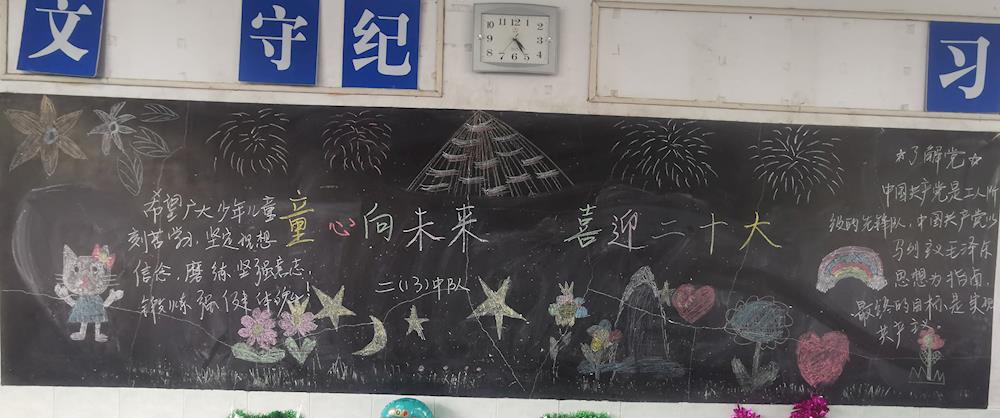 文 守 纪 习
10 11 12 1 2 3 4 5 6 7 8 9
希望广大少年儿童
刻苦学习,坚定理想
信念,磨练坚强意志,
锻炼强健体魄!
童心向未来 喜迎二十大
二(13)中队
☆了解党☆
中国共产党是工人阶
级的先锋队,中国共产党以
马列主义毛泽东
思想为指南,
最终的目标是实现
共产主义.